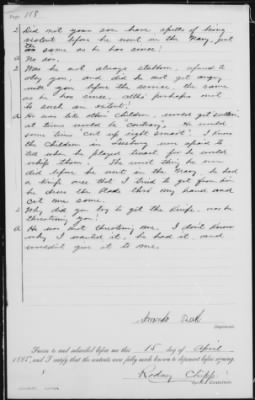 Page 118
Q Did not your son have spells of being
violent before he went in the Navy, just
the same as he has since?
A No sir.
Q Was he not always stubborn, refused to
obey you, and did he not get angry
with you before the service, the same
as he has since, altho' perhaps not
to such an extent?
A He was like other children, would get sullen
at times, would be contrary. He would
some times "cut up right smart". I know
the children in Leesburg were afraid to
when he played truant for he would
whip them. The worst thing he ever
did before he went in the Navy, he had
a knife once that I tried to get from him
he drew the blade thro' my hand and
cut me some.
Q Why did you try to get the knife, was he
threatening you?
A He was not threatening me, I don't know
why I wanted it. He had it, and
wouldn't give it to me.
Deponent.
Sworn to and subscribed before me this 15 day of April
1885, and I certify that the contents were fully made known to deponent before signing.
Rodney Chipp